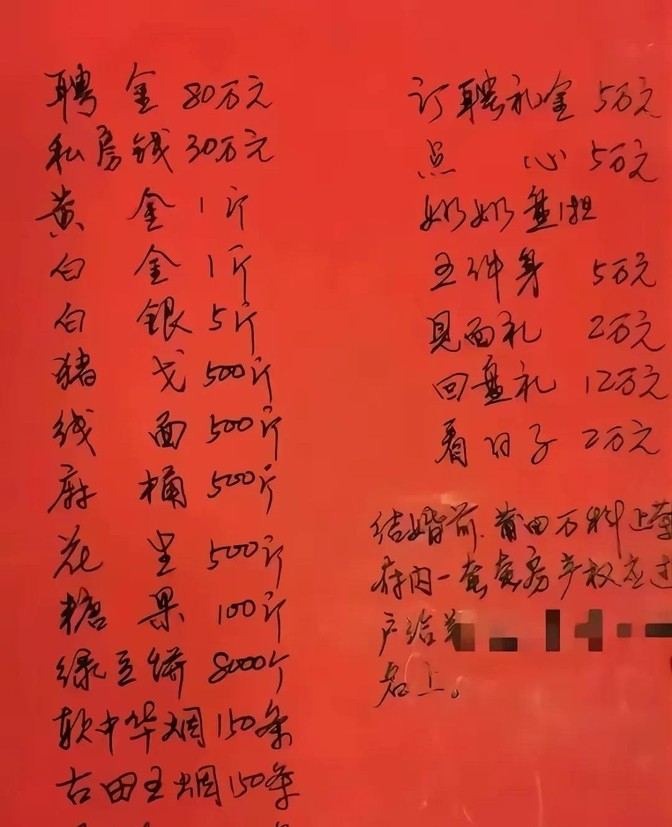 聘金 80万元
私房钱 30万元
黄金 1斤
白金 1斤
白银 5斤
猪戈 500斤
线面 500斤
麻桶 500斤
花生 500斤
糖果 100斤
绿豆饼 8000个
软中华烟 150条
古田王烟 150条
订聘礼金 5万元
点心 5万元
奶奶盘担
王件身 5万元
见面礼 2万元
回盘礼 12万元
看日子 2万元
结婚前.莆田万科上
府内一套房产权应过
户给
名上。